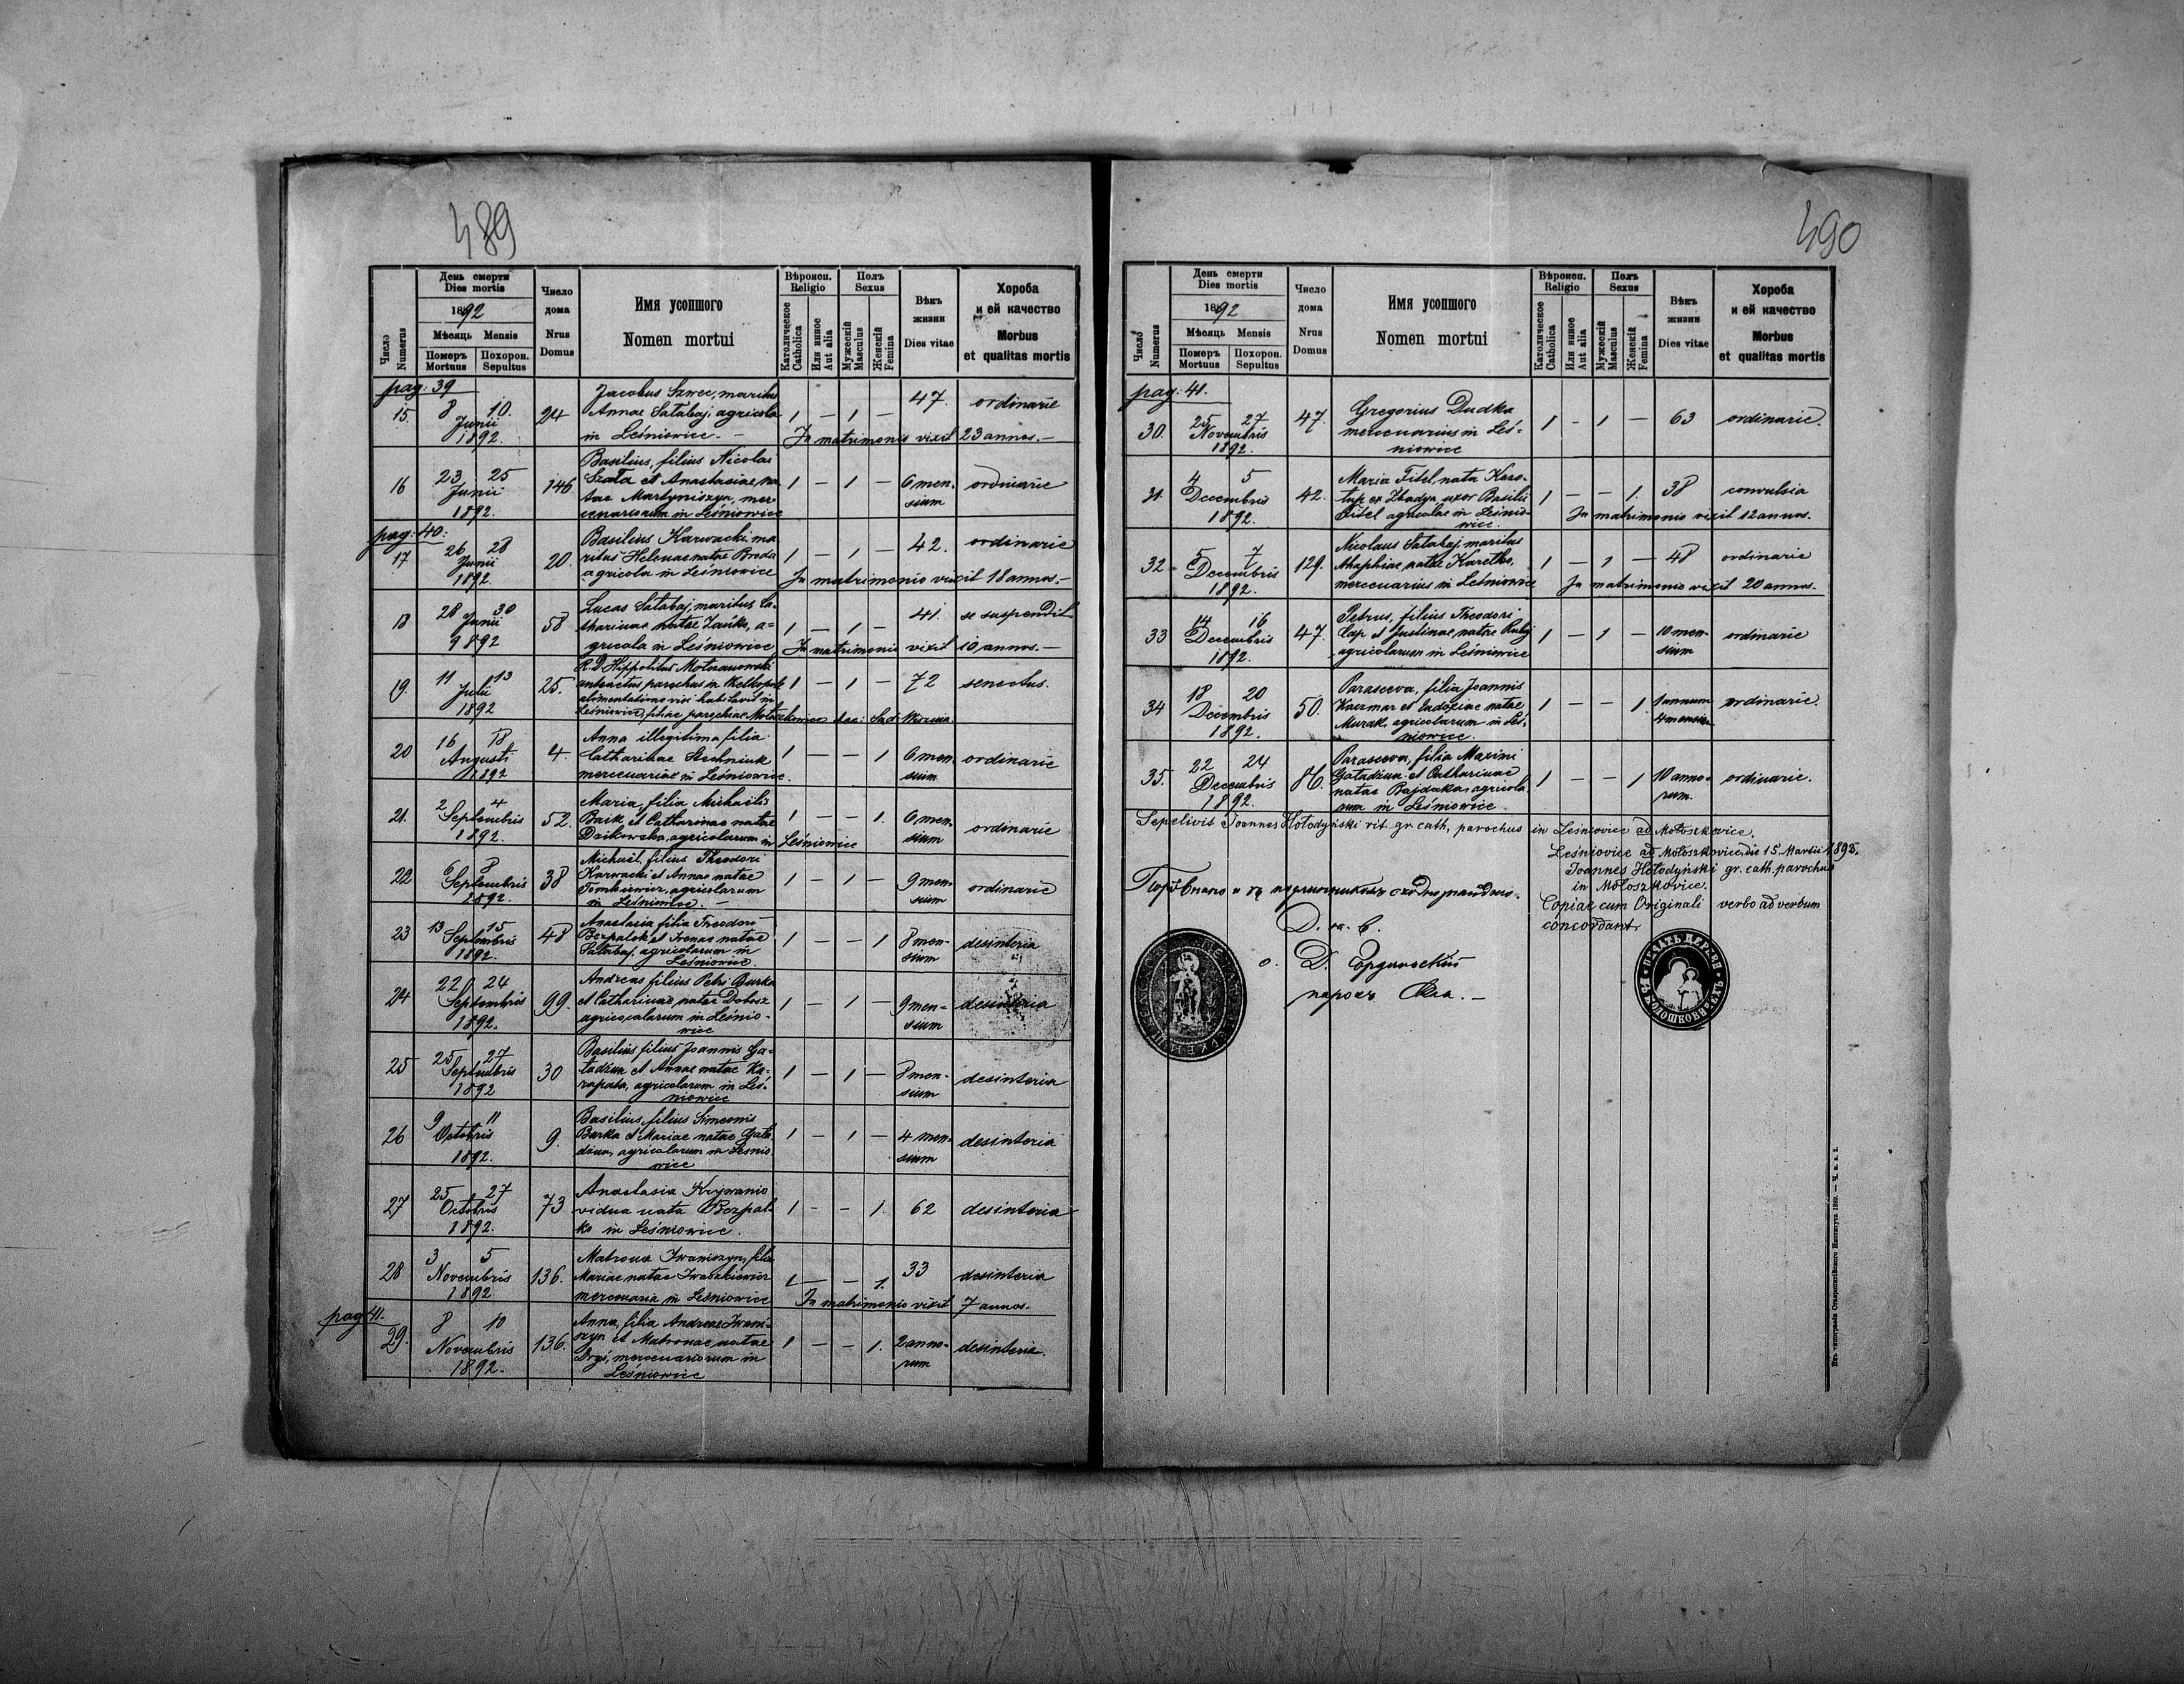 489
День смерти
Dies mortis
1892
Мѣсяць Mensis
Померъ Mortuus
Похорон. Sepultus
Число Numerus
Число дома
Nrus Domus
Имя усопшого
Nomen mortui
Вѣроисп.
Religio
Католическое Catholica
Или инное Aut alia
Полъ
Sexus
Мужескій Masculus
Женскій Femina
Вѣкъ жизни
Dies vitae
Хороба
и ей качество
Morbus
et qualitas mortis
pag: 39
15. 8 10. Junii 1892. 24
Jacobus Szwec, maritus
Annae Sałabaj, agricola
in Leśniowice. –
1 – 1 – 47. ordinarie
In matrimonio vixit 23 annos. –
16 23 25 Junii 1892. 146
Basilius, filius Nicolai
Szała et Anastasiae na-
tae Martyniszyn, mer-
cenariorum in Leśniowice
1 – 1 – 6 men-
sium ordinarie
pag: 40:
17 26 28 Junii 1892. 20.
Basilius Karwacki, ma-
ritus Helenae natae Broda
agricola in Leśniowice
1 – 1 – 42. ordinarie
In matrimonio vixit 18 annos. –
18 28 30 Junii 9892 58
Lucas Sałabaj, maritus Ca-
tharinae natae Zańko, a=
gricola in Leśniowice
1 – 1 – 41. se suspendit
In matrimonio vixit 10 annos. –
19. 11 13 Julii 1892 25.
R. D. Hippolitus
parochus in
habitavit in
Leśniowice, filiae parochiae
1 – 1 – 72 senectus.
20 16 18 Augusti 1892 4.
Anna illegitima filia
Catharinae Stechniuk
mercenariae in Leśniowice.
1 – – 1 6 men-
sium ordinarie
21. 2 4 Septembris 1892. 52.
Maria, filia Michaëlis
Baik et Catharinae natae
Dzikowska, agricolarum in Leśniowice
1 – – 1. 6 men-
sium ordinarie
22 6 8 Septembris 1892. 38
Michaël, filius Theodori
Karwacki et Annae natae
Tomkiewicz, agricolarum
in Leśniowice. –
1 – 1 – 9 men-
sium ordinarie
23 13 15 Septembris 1892. 48
Anastasia filia Theodori
Bezpalok et Irenae natae
Sałabaj, agricolarum in
Leśniowice.
1 – – 1 8 men-
sium desinteria
24 22 24 Septembris 1892. 99.
Andreas filius Petri Burka
et Catharinae natae Dobosz
agricocolarum in Leśnio-
wice
1 – 1 – 9 men-
sium desinteria
25 25 27 Septembris 1892 30
Basilius filius Joannis Ga-
ładżun et Annae natae Ka-
rapata, agricolarum in Leś-
niowice
1 – 1 – 8 men-
sium desinteria
26 9 11 Octobris 1892. 9.
Basilius, filius Simeonis
Burka et Mariae natae Gała-
dżun, agricolarum in Leśnio-
wice
1 – 1 – 4 men-
sium desinteria
27 25 27 Octobris 1892. 73
Anastasia Krywanio
vidua nata Bezpal-
ko in Leśniowice.
1 – – 1. 62 desinteria
28 3 5 Novembris 1892 136.
Matrona Iwaniszyn, filia
Mariae natae Iwaszkiewicz
mercenaria in Leśniowice
1 – – 1. 33 desinteria
In matrimonio vixit 7 annos.
pag. 41.
29. 8 10 Novembris 1892. 136.
Anna, filia Andreae Iwani-
szyn et Matronae natae
Dryś, mercenariorum in
Leśniowice
1 – – 1. 2 anno-
rum desinteria.
490
День смерти
Dies mortis
1892
Мѣсяць Mensis
Померъ Mortuus
Похорон. Sepultus
Число Numerus
Число дома
Nrus Domus
Имя усопшого
Nomen mortui
Вѣроисп.
Religio
Католическое Catholica
Или инное Aut alia
Полъ
Sexus
Мужескій Masculus
Женскій Femina
Вѣкъ жизни
Dies vitae
Хороба
и ей качество
Morbus
et qualitas mortis
pag: 41.
30. 25 27 Novembris 1892. 47.
Gregorius Dudka
mercenarius in Leś-
niowice
1 – 1 – 63 ordinarie.
31. 4 5 Decembris 1892. 42.
Maria Fitel, nata
uxor Basilii
Fitel agricolae in Leśnio-
wice.
1 – – 1. 38 convulsia
In matrimonio vixit 12 annos.
32 5 7 Decembris 1892. 129.
Nicolaus Sałabaj maritus
natae
mercenarius in Leśniowice
1 – 1 – 48 ordinarie
In matrimonio vixit 20 annos.
33 14 16 Decembris 1892. 47.
Petrus, filius Theodori
Cap et Justinae, natae Rubij
agricolarum in Leśniowice
1 – 1 – 10 men-
sium ordinarie
34 18 20 Decembris 1892. 50.
Parasceva, filia Joannis
Kaczmar et Eudoxiae natae
Murak, agricolarum in Leś-
niowice.
1 – – 1 1 annum
4 mensium ordinarie.
35. 22 24 Decembris 1892. 86.
Parasceva, filia Maximi
Gaładżun et Catharinae
natae Bajdaka, agricola-
rum in Leśniowice
1 – – 1 10 anno-
rum. ordinarie.
Sepelivit Joannes Hołodyński rit. gr. cath, parochus in Leśniovice ad Mołoszkovice.
Leśniovice ad Mołoszkovice, die 15. Martii 1893.
Joannes Hołodyński gr. cath. parochus
in Mołoszkovice.
Copiae cum Originali verbo ad verbum
concordant.
Порôвнано и зъ
Д. Гординьскій
парохъ
ПЕЧАТЬ ЦЕРКВИ